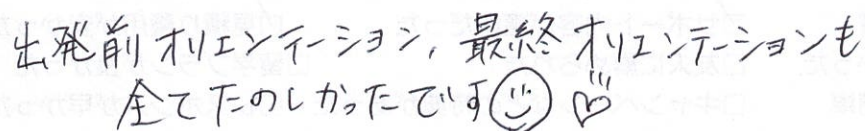 出発前オリエンテーション, 最終オリエンテーションも
全てたのしかったです